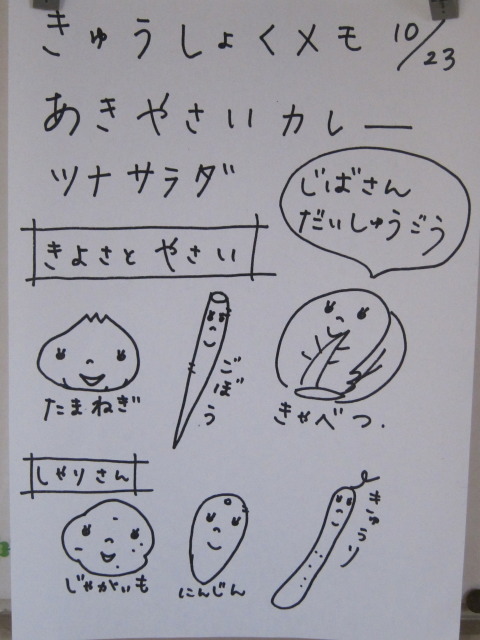 きゅうしょくメモ 10/23
あきやさいカレー
ツナサラダ
じばさん
だいしゅうごう
きよさと やさい
たまねぎ
ごぼう
きゃべつ.
しゃりさん
じゃがいも
にんじん
きゅうり